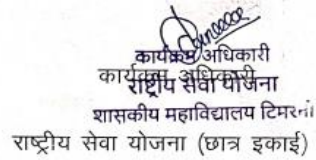 कार्यक्रम अधिकारी
कार्यक्रम अधिकारी
राष्ट्रीय सेवा योजना
शासकीय महाविद्यालय टिमरनी
राष्ट्रीय सेवा योजना (छात्र इकाई)